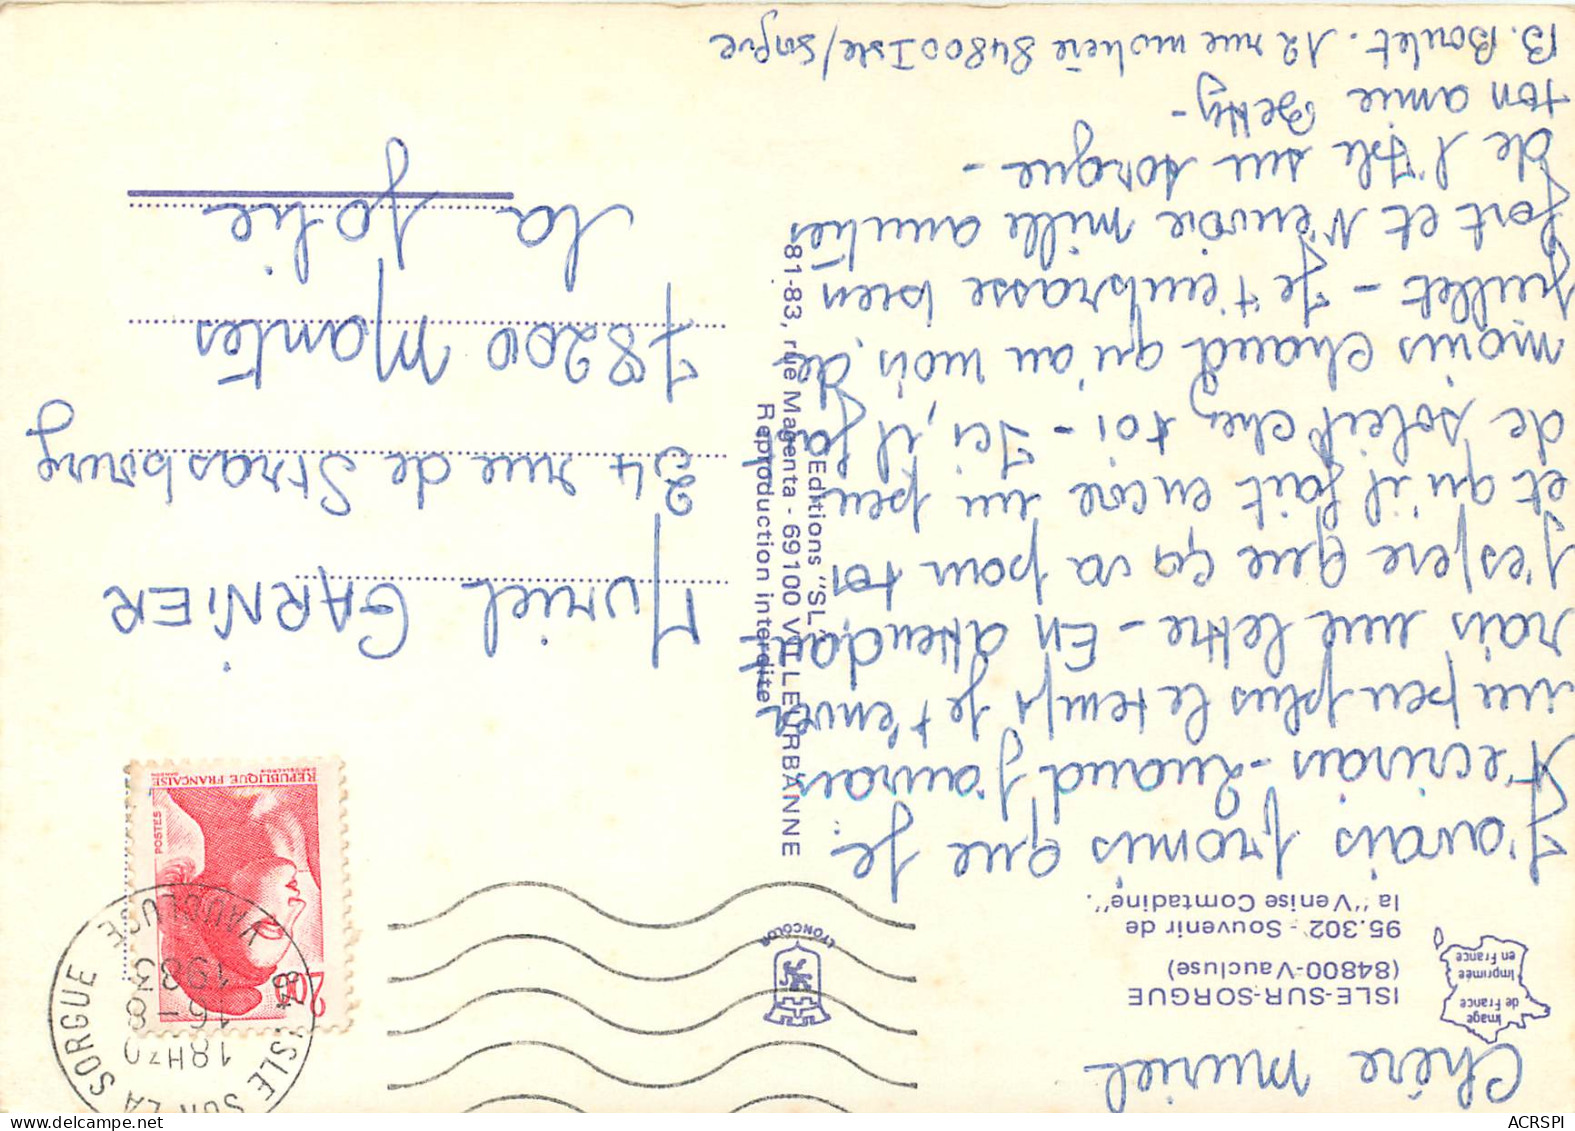 Chère Muriel
ISLE-SUR-SORGUE
(84800-Vaucluse)
95.302 - Souvenir de
la "Venise Comtadine".
Image
de France
Imprimée
en France
J'avais promis que je
t'ecrirais - Quand j'aurais
un peu plus le temps je t'enver
rais une lettre - En attendant
j'espère que ça va pour toi
et qu'il fait encore un peu
de soleil chez toi - Ici, il fait
moins chaud qu'au mois de
Juillet - Je t'embrasse bien
fort et t'envoie mille amitiés
de l'Isle sur Sorgue -
ton amie Betty -
B. Boulet . 12 rue molière 84800 Isle/Sorgue
LYONCOLOR
Editions "SL"
81-83, rue Magenta - 69100 VILLEURBANNE
Reproduction interdite
84 ISLE SUR LA SORGUE
18H30
16-8
1983
VAUCLUSE
2,00
POSTES
REPUBLIQUE FRANÇAISE
Muriel GARNIER
34 rue de Strasbourg
78200 Mantes
la Jolie
ACRSPI